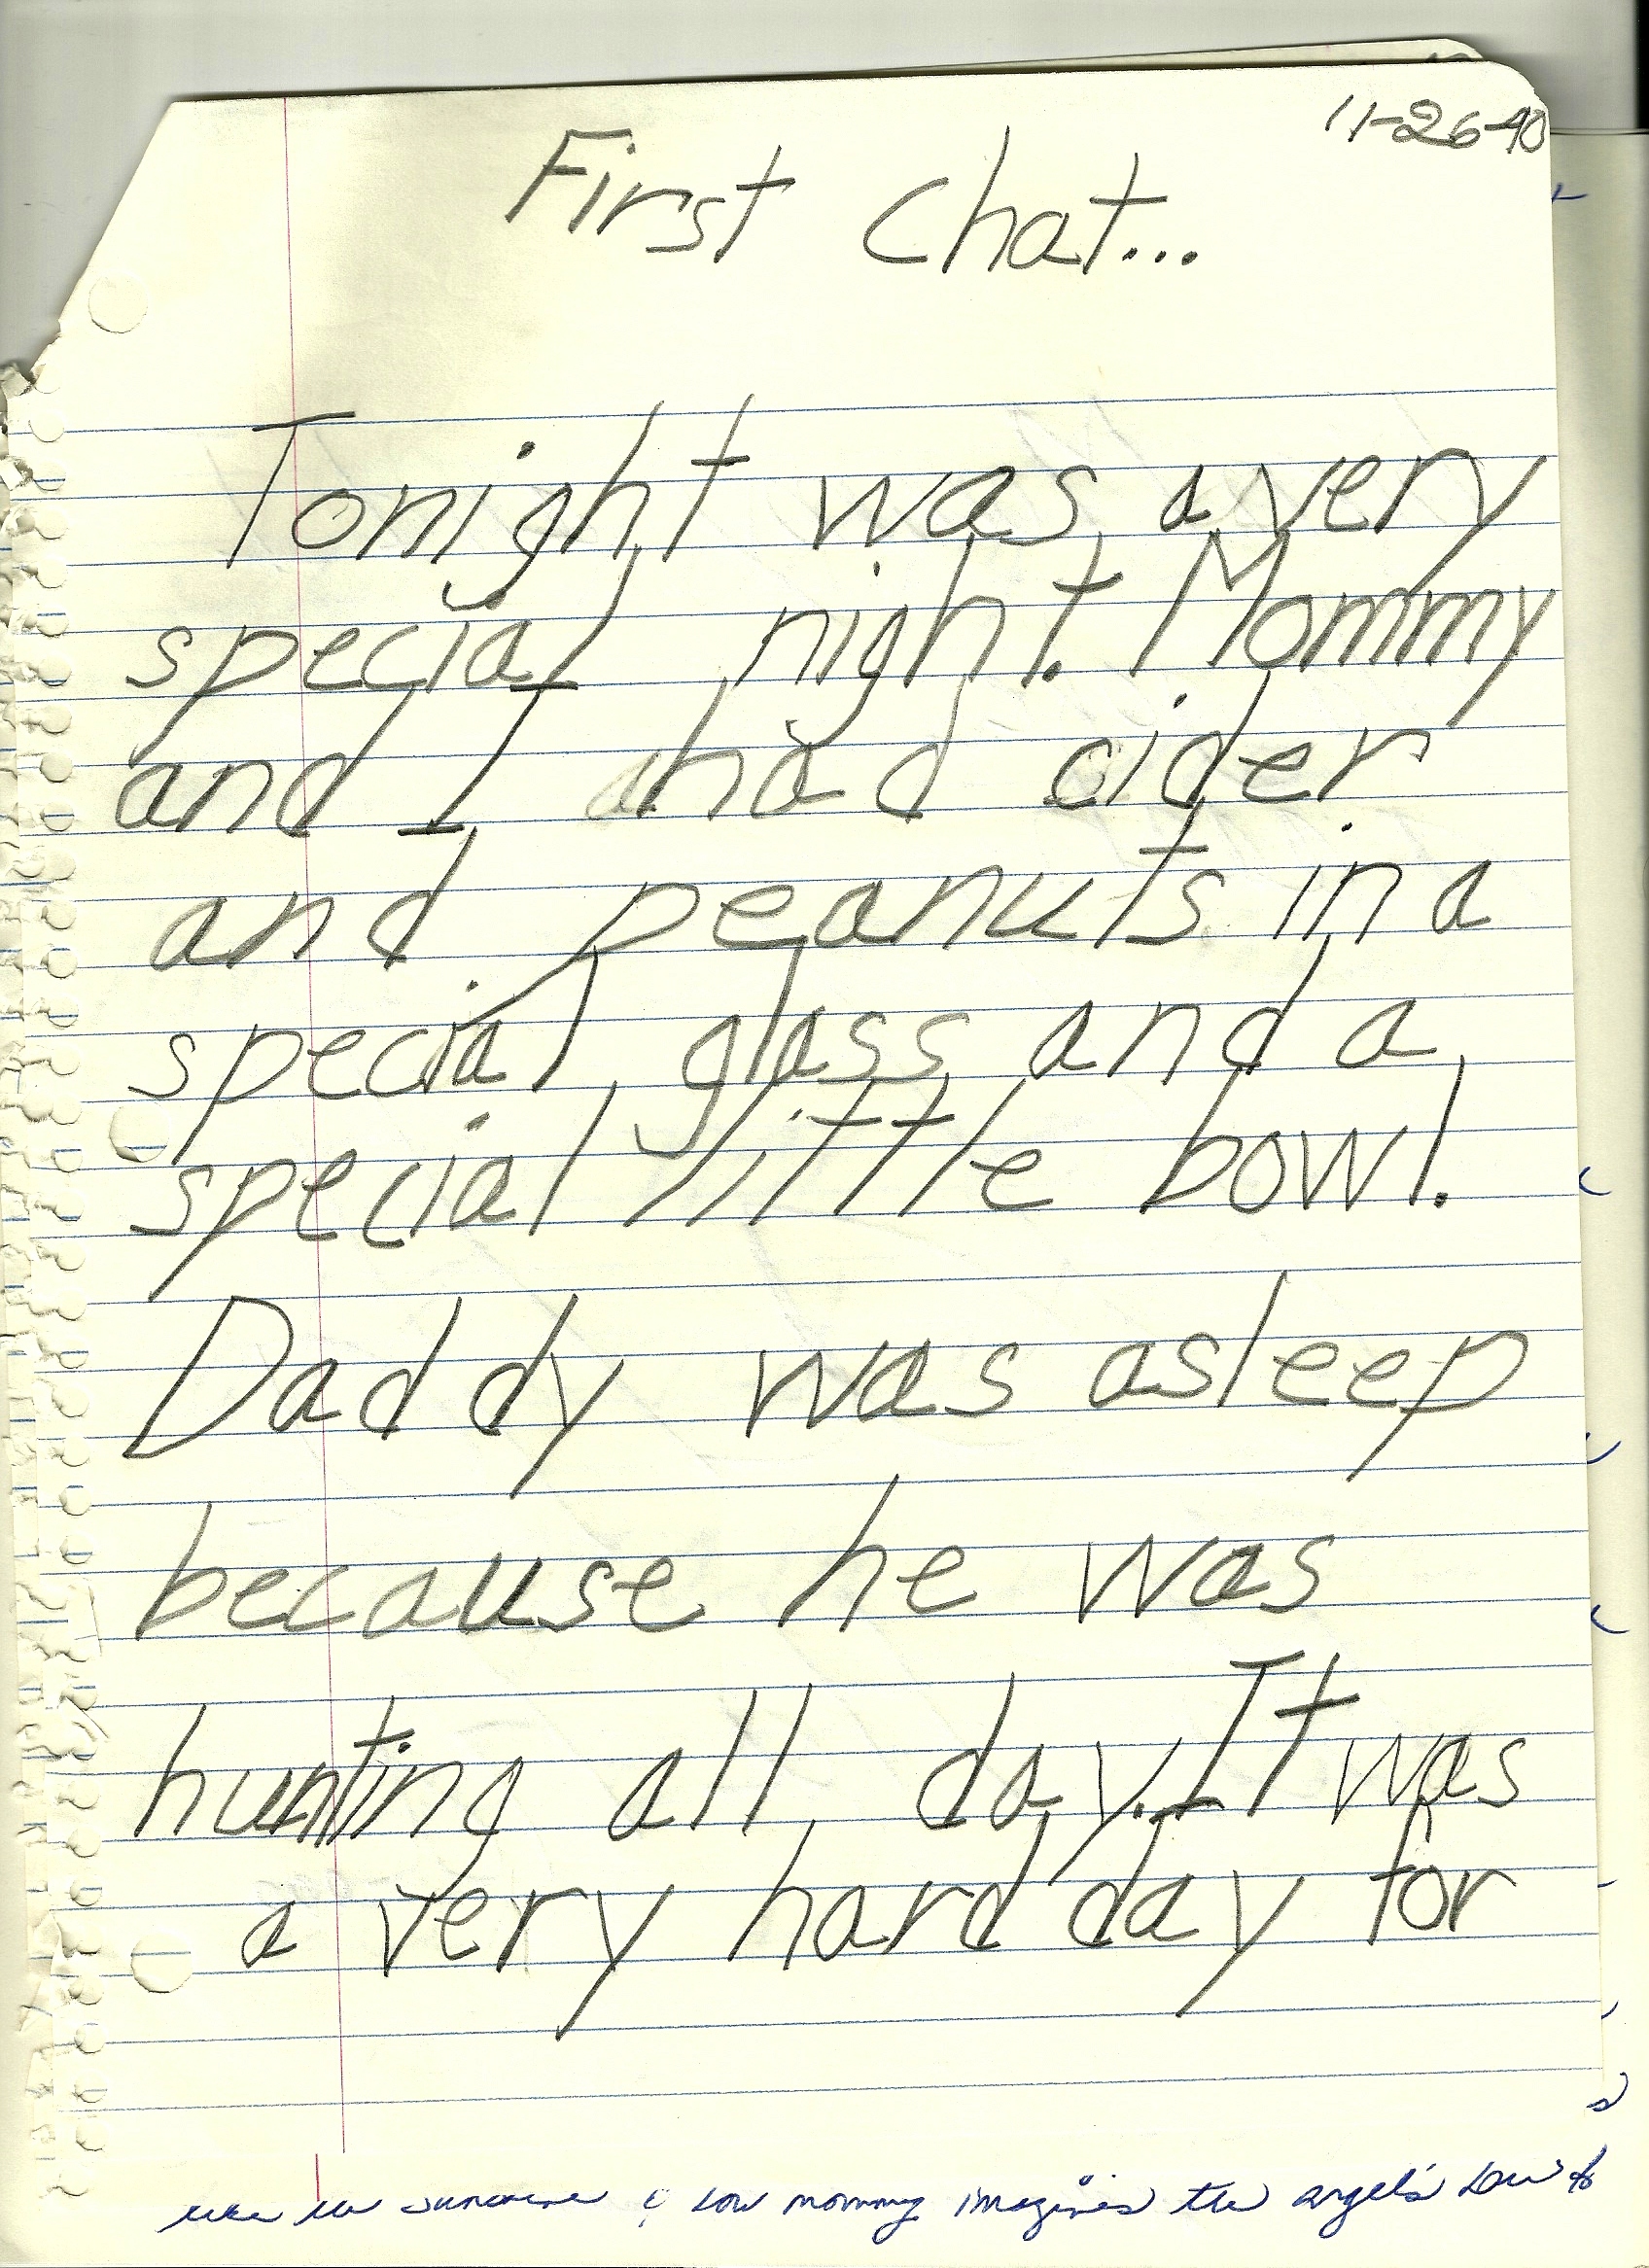 11-26-90
First Chat...
Tonight was a very
special night. Mommy
and I had cider
and peanuts in a
special glass and a
special little bowl.
Daddy was asleep
because he was
hunting all day. It was
a very hard day for
mommy imagines the angels